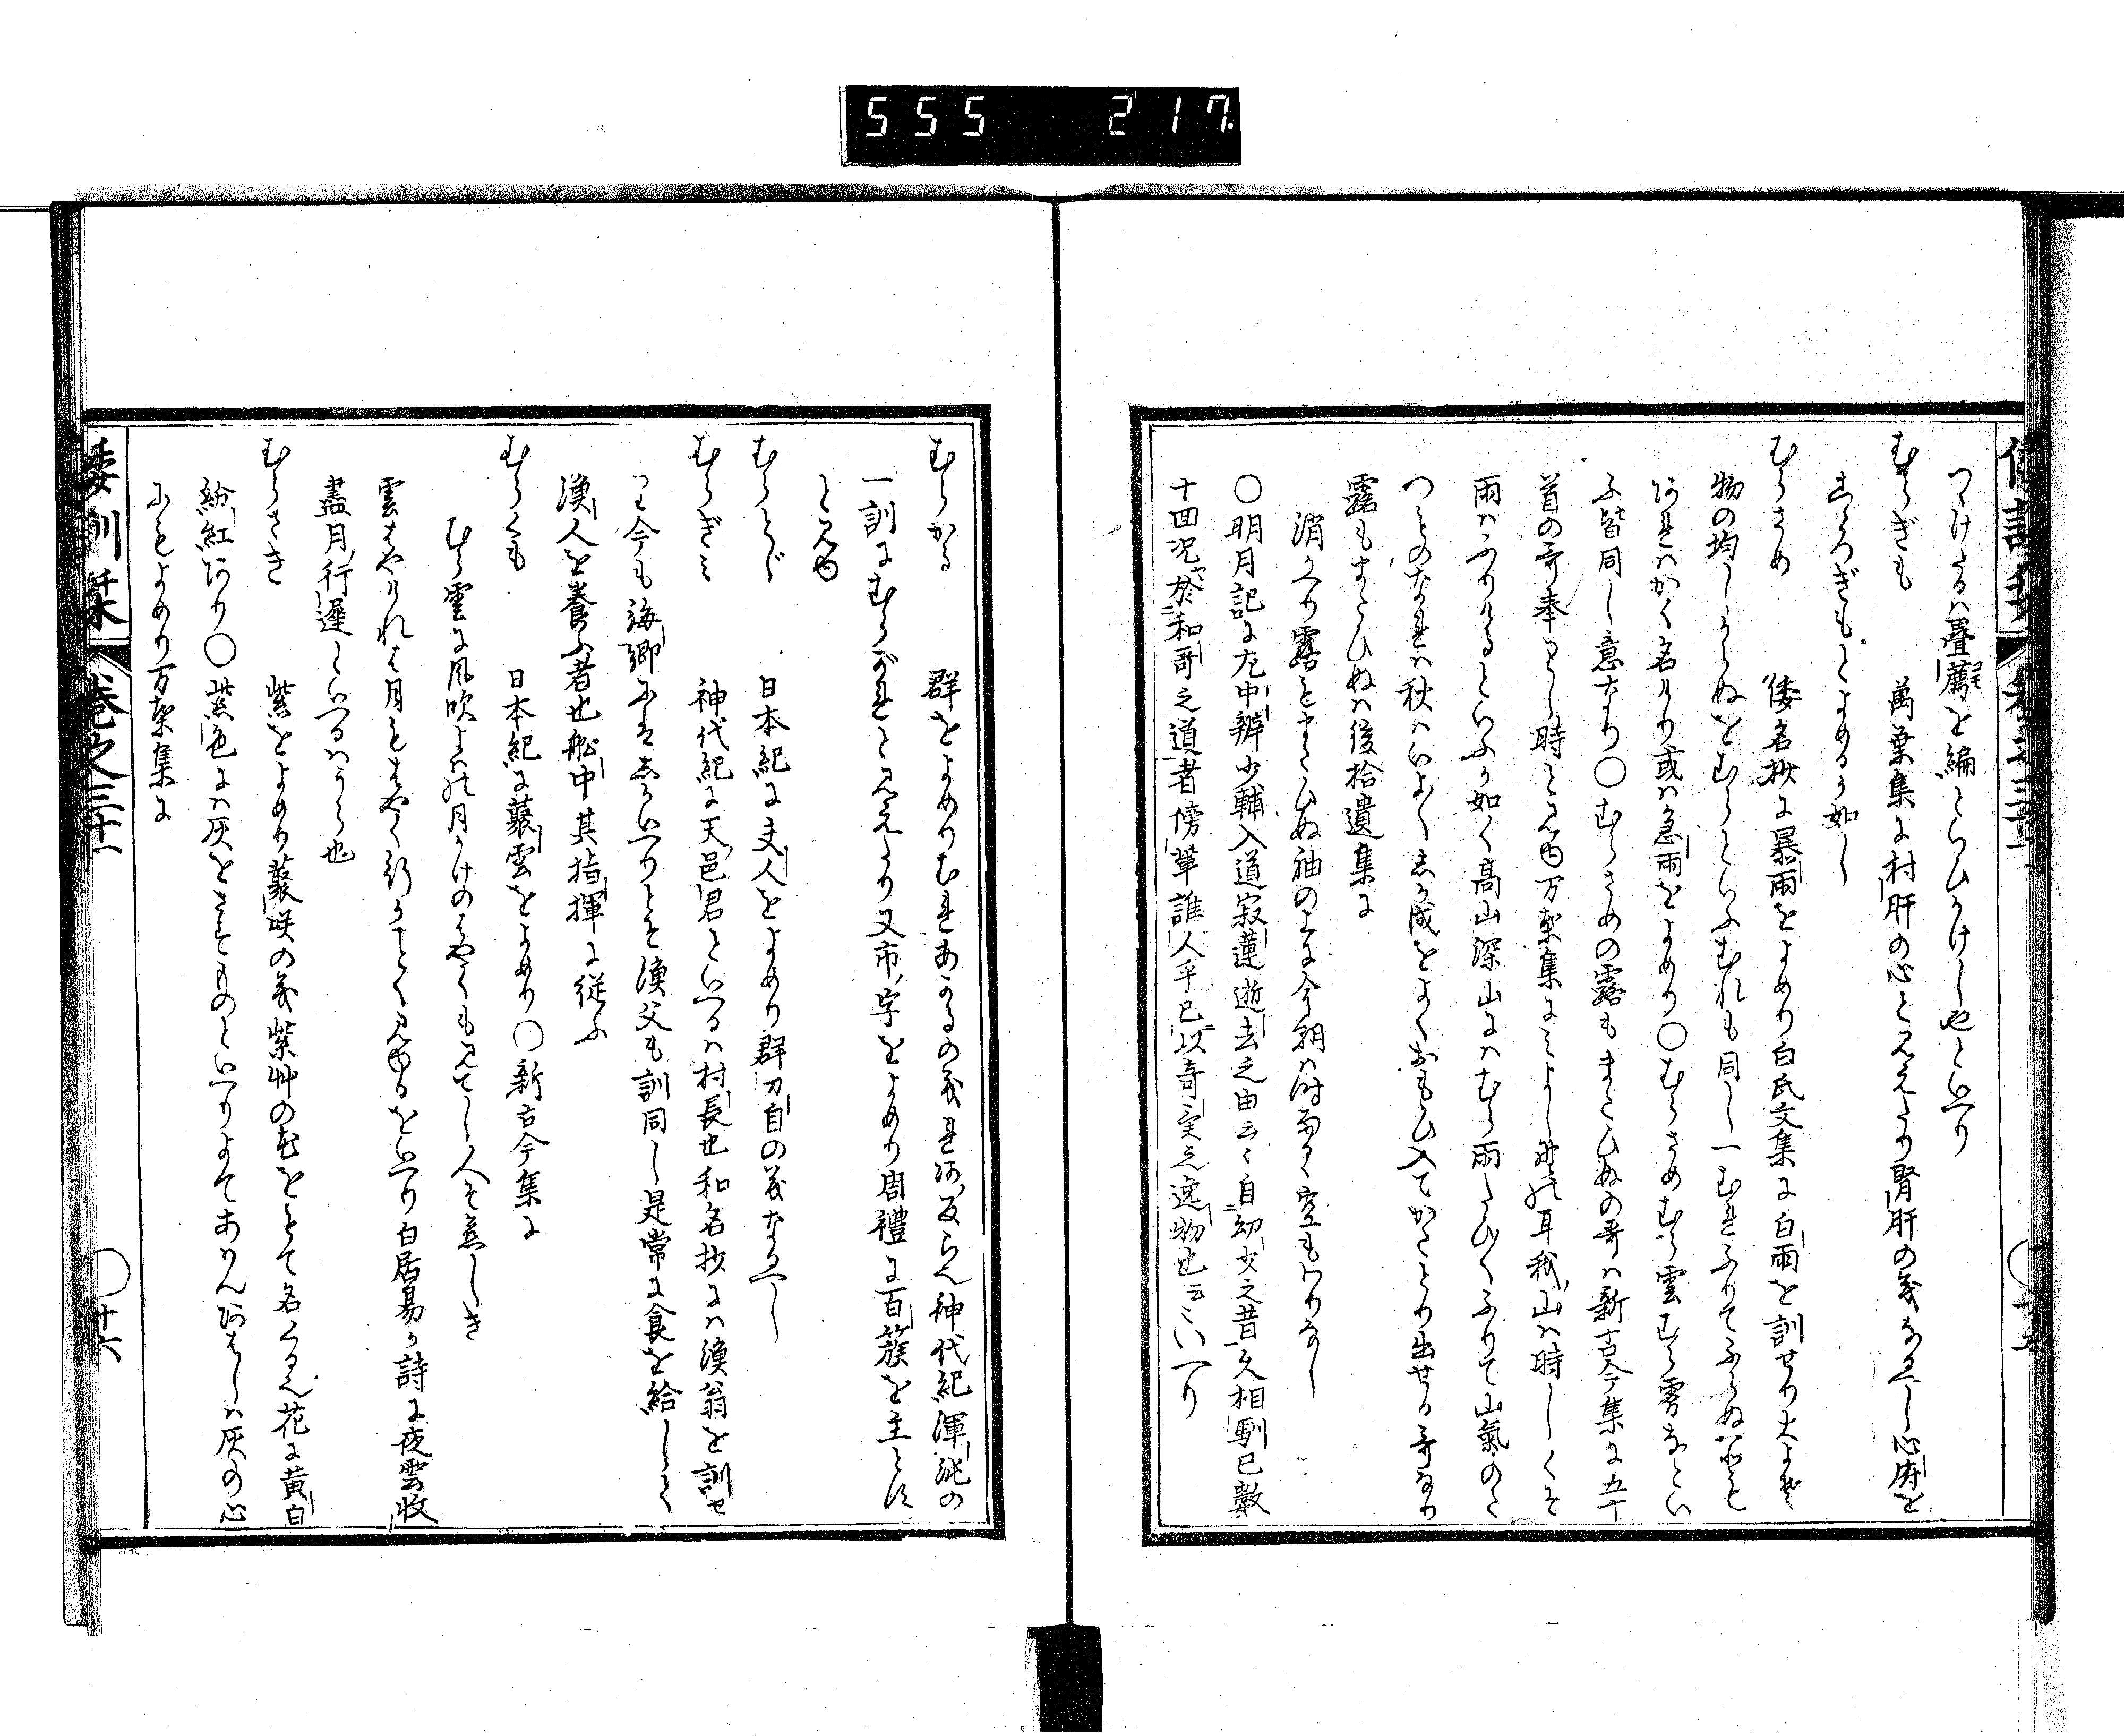 555 217
つけたるハ畳薦を編とらひかけしやといへり
むらぎも 萬葉集に村肝の心と見えたり腎肝の義なるべし心府を
こゝろぎもとよめるか如し
むらさめ 倭名抄に暴雨をよめり白氏文集に白雨を訓せり大よそ
物の均しからぬをむらといふむれも同し一むれふりてふらぬ所も
あれハかく名けり或ハ急雨をよめり〇むらさめむら雲むら霧なとい
ふ皆同し意なり〇むらさめの露もまたひぬの哥ハ新古今集に五十
首の哥奉りし時と見ゆ万葉集にみよし野の耳我山ハ時しくそ
雨ハふりけるといふか如く高山深山にハむら雨たひ〳〵ふりて山氣のた
つものなれハ秋ハいよ〳〵しか成をよくおもひ入てかたとり出せる哥なり
露もまたひぬハ後拾遺集に
消かへり露もまたひぬ袖の上に今朝ハ時雨るゝ空もわりなし
〇明月記に左中辨少輔入道寂蓮逝去之由云々自幼少之昔久相馴已數
十回况於和哥之道者傍輩誰人乎已以奇異之逸物也云々いへり
むらかる 群をよめりむれあかるの義れあ反らん神代紀渾沌の
一訓にむらがれと見えたり又市ノ字をよめり周禮に百簇を主とす
と見ゆ
むらとじ 日本紀に夫人をよめり群刀自の義なるべし
むらぎミ 神代紀に天ノ邑君といへるハ村長也和名抄にハ漁翁を訓せ
り今も海郷にはしかいへりとそ漁父も訓同し是常に食を給しく
漁人を養ふ者也舩中其指揮に従ふ
むらくも 日本紀に叢雲をよめり〇新古今集に
むら雲に風吹よハの月かけのはやくも見てし人そ恋しき
雲はやけれは月もはやく行かことく見ゆるをいへり白居易か詩に夜雲收
盡月行遲といへるハうら也
むらさき 紫をよめり叢咲の義紫艸の花をもて名くる也花に黄白
紛紅あり〇紫色にハ灰をさすものといへりよてあけんあはしハ灰の心
にもよめり万葉集に
倭訓栞 卷之三十一 〇十六